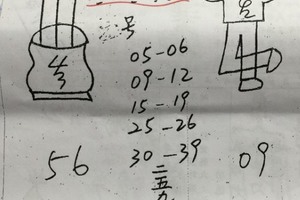 号
05-06
09-12
15-19
25-26
30-39
二
五
九
56
09